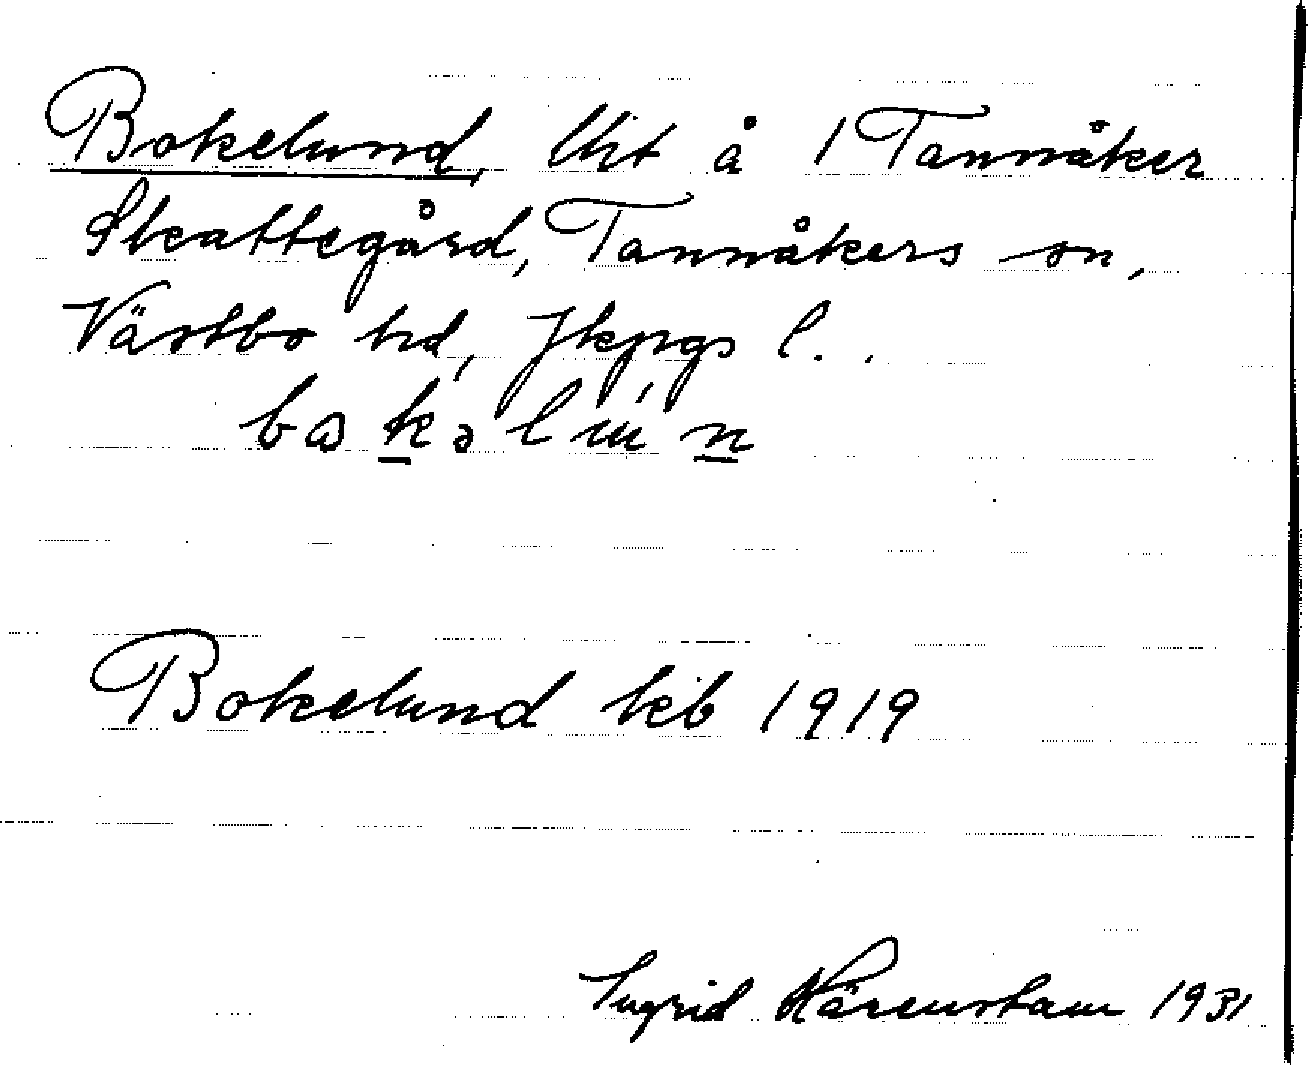 Bokelund, lht å 1 Tannåker
Skattegård, Tannåkers sn,
Västbo hd, Jkpgs l.
Bokelund kb 1919
Ingrid Kärenstam 1931